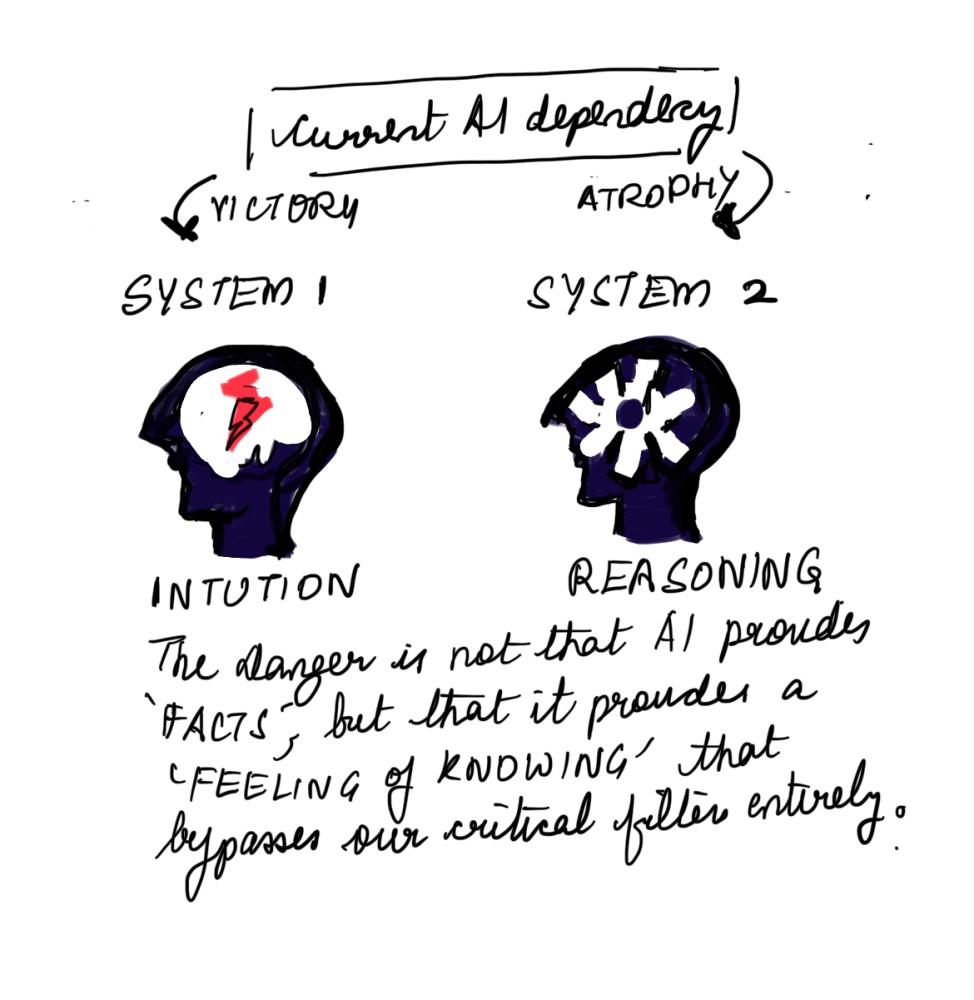 Current AI dependency
VICTORY
ATROPHY
SYSTEM 1
SYSTEM 2
INTUTION
REASONING
The danger is not that AI provides
'FACTS', but that it provides a
'FEELING of KNOWING' that
bypasses our critical filters entirely.